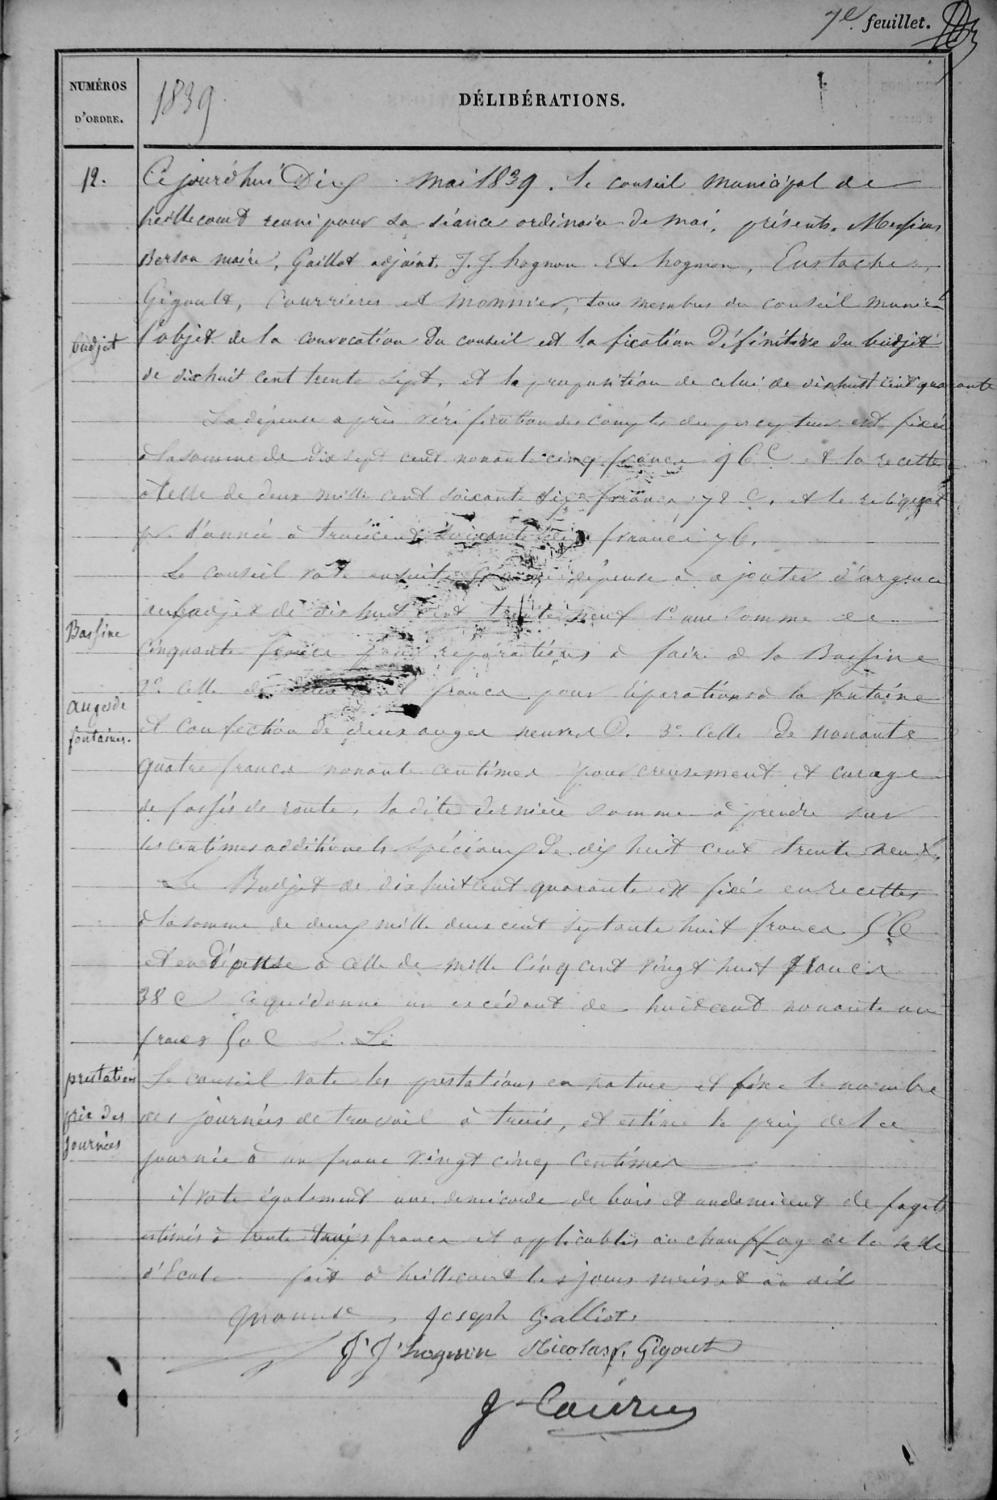 7e feuillet.
NUMÉROS
D'ORDRE.
1839
DÉLIBÉRATIONS.
12. Ce jourd'hui Dix mai 1839. le conseil municipal de
heillecourt reuni pour sa séance ordinaire de mai, présents, Messieurs
Berson maire, Gaillot adjoint, J. J. hognon et hognon, Eustache,
Gigoult, Courrieres et Monnier, tous membres du conseil munic
budjet l'objet de la convocation du conseil est la fixation définitive du budjet
de dixhuit cent trente sept, et la proposition de celui de dixhuit cent quarante
La dépense après vérification des comptes du percepteur est fixée
à la somme de dix sept cent nonante cinq francs 96 C et la recette
à celle de deux mille cent soixante francs 72 C. et le reliquat
d'année à trois cent soixante seize francs 76.
Le conseil vote ensuite dépense à ajouter d'urgence
au badjet de dix huit cent trente neuf 1º une somme de
Bassine cinquante francs pour réparations à faire à la Bassine
2º celle de francs pour réparations à la fontaine
auges de
fontaines. et confection de deux auges neuves. 3º Celle de nonante
quatre francs nonante centimes pour creusement et curage
de fossés de route, la dite dernière somme à prendre sur
les centimes additionels spéciaux de dix huit cent trente neuf.
Le Budjet de dixhuitcent quarante est fixé en recettes
à la somme de deux mille deux cent septante huit francs
et en dépense à celle de mille cinq cent vingt huit francs
38 C ce qui donne un excédant de huit cent nonante un
francs 50 C
prestations Le conseil vote les prestations en nature et fixe le nombre
prix des des journées de travail à trois, et estime le prix de la
journées journée à un franc vingt cinq centimes
il vote également une demicorde de bois et un demicent de fagots
estimés à trente trois francs et applicables au chauffage de la salle
d'Ecole fait à heillecourt les jours mois et an dit
Joseph Galliot
J J hognon Nicolas f. Gigout